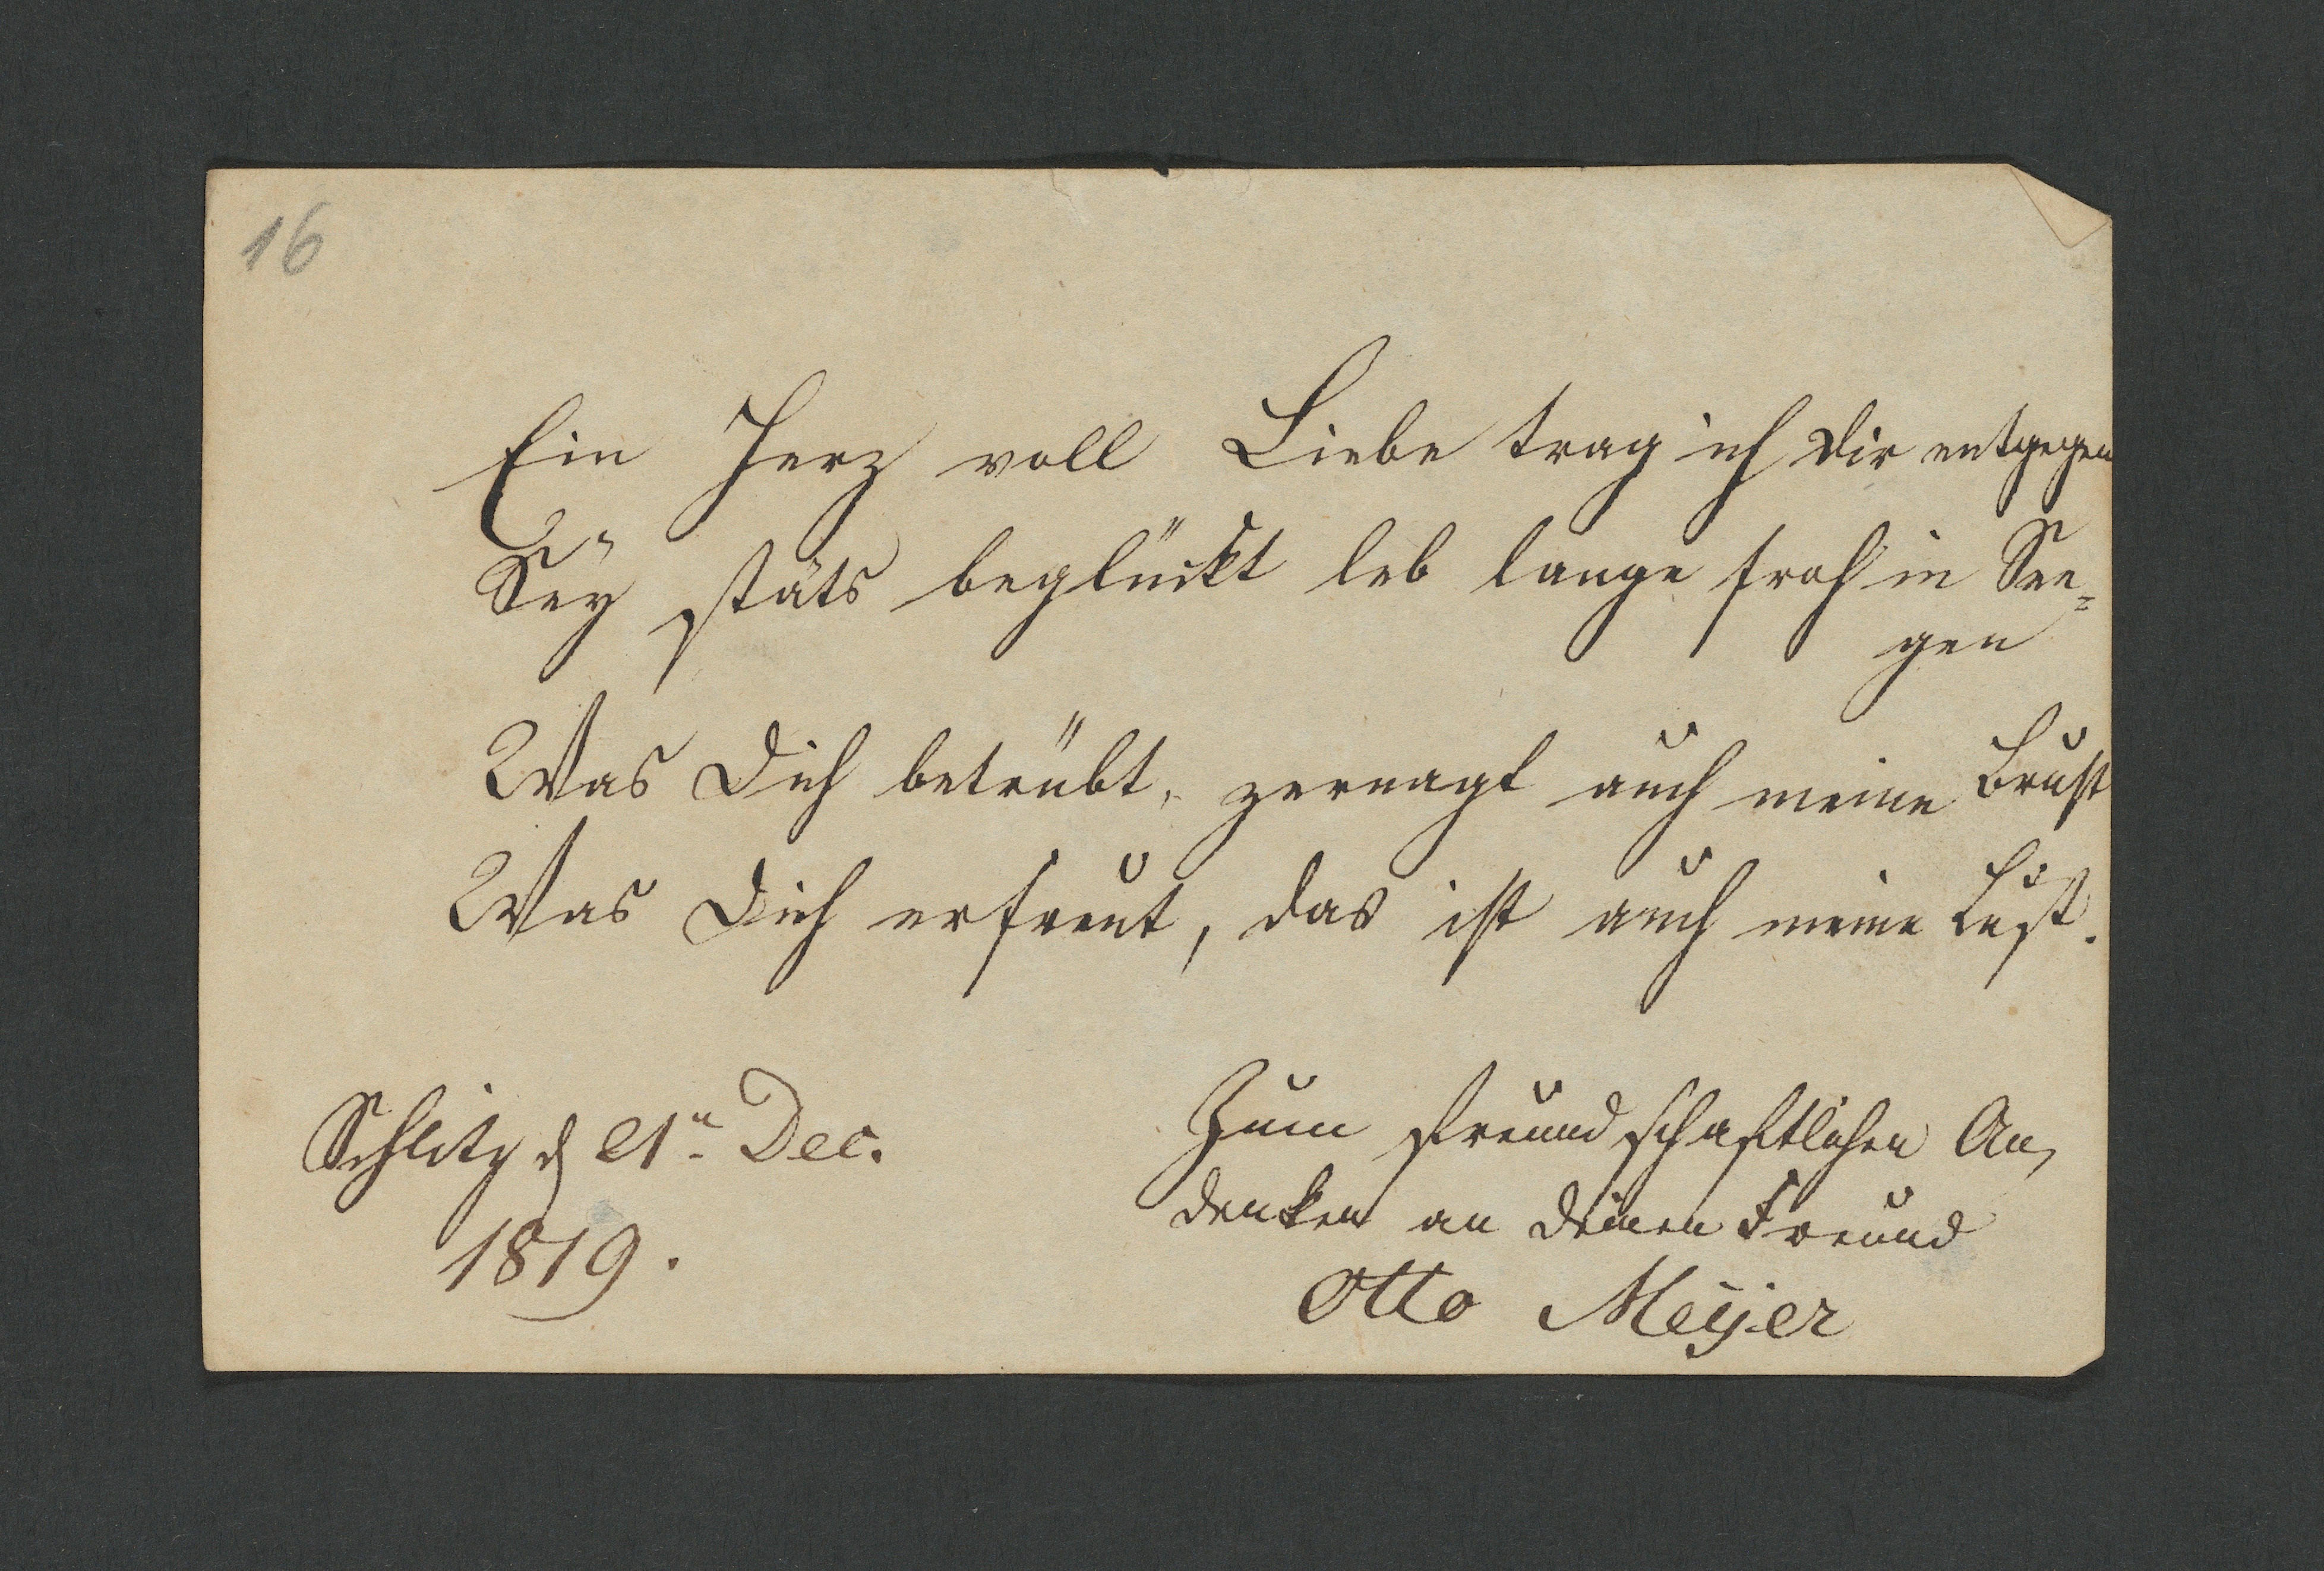 16
Ein Herz voll Liebe trag ich Dir entgegen
Seÿ stäts beglückt leb lange froh in See=
gen
Was Dich betrübt, zernagt auch meine Brust
Was Dich erfreut, das ist auch meine Lust.
Schlitz d 21n Dec.
1819.
Zum freundschaftlichen An,
denken an deinen Freund
Otto Meÿer